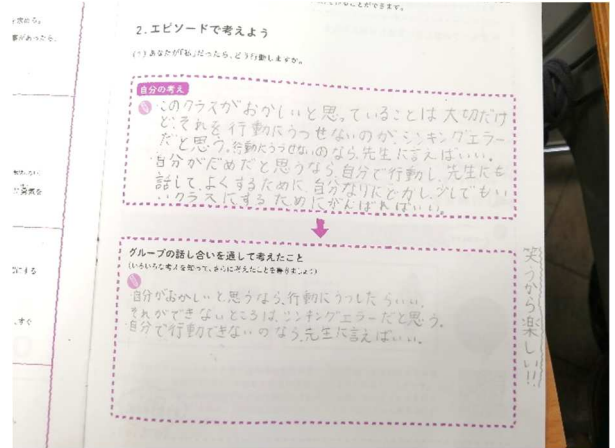 ことができます。
2.エピソードで考えよう
(1)あなたが「私」だったら、どう行動しますか。
自分の考え
このクラスがおかしいと思っていることは大切だけ
ど、それを行動にうつせないのが、シンキングエラー
だと思う。行動にうつせないのなら、先生に言えばいい。
自分がだめだと思うなら、自分で行動し、先生にも
話して、よくするために自分なりに努力し、少しでもい
いクラスにするためにがんばればいい。
グループの話し合いを通して考えたこと
(いろいろな考えを知って、さらに考えたことを書きましょう)
自分がおかしいと思うなら、行動にうつしたらいい。
それができないところは、シンキングエラーだと思う。
自分で行動できないのなら、先生に言えばいい。
笑うから楽しい!!